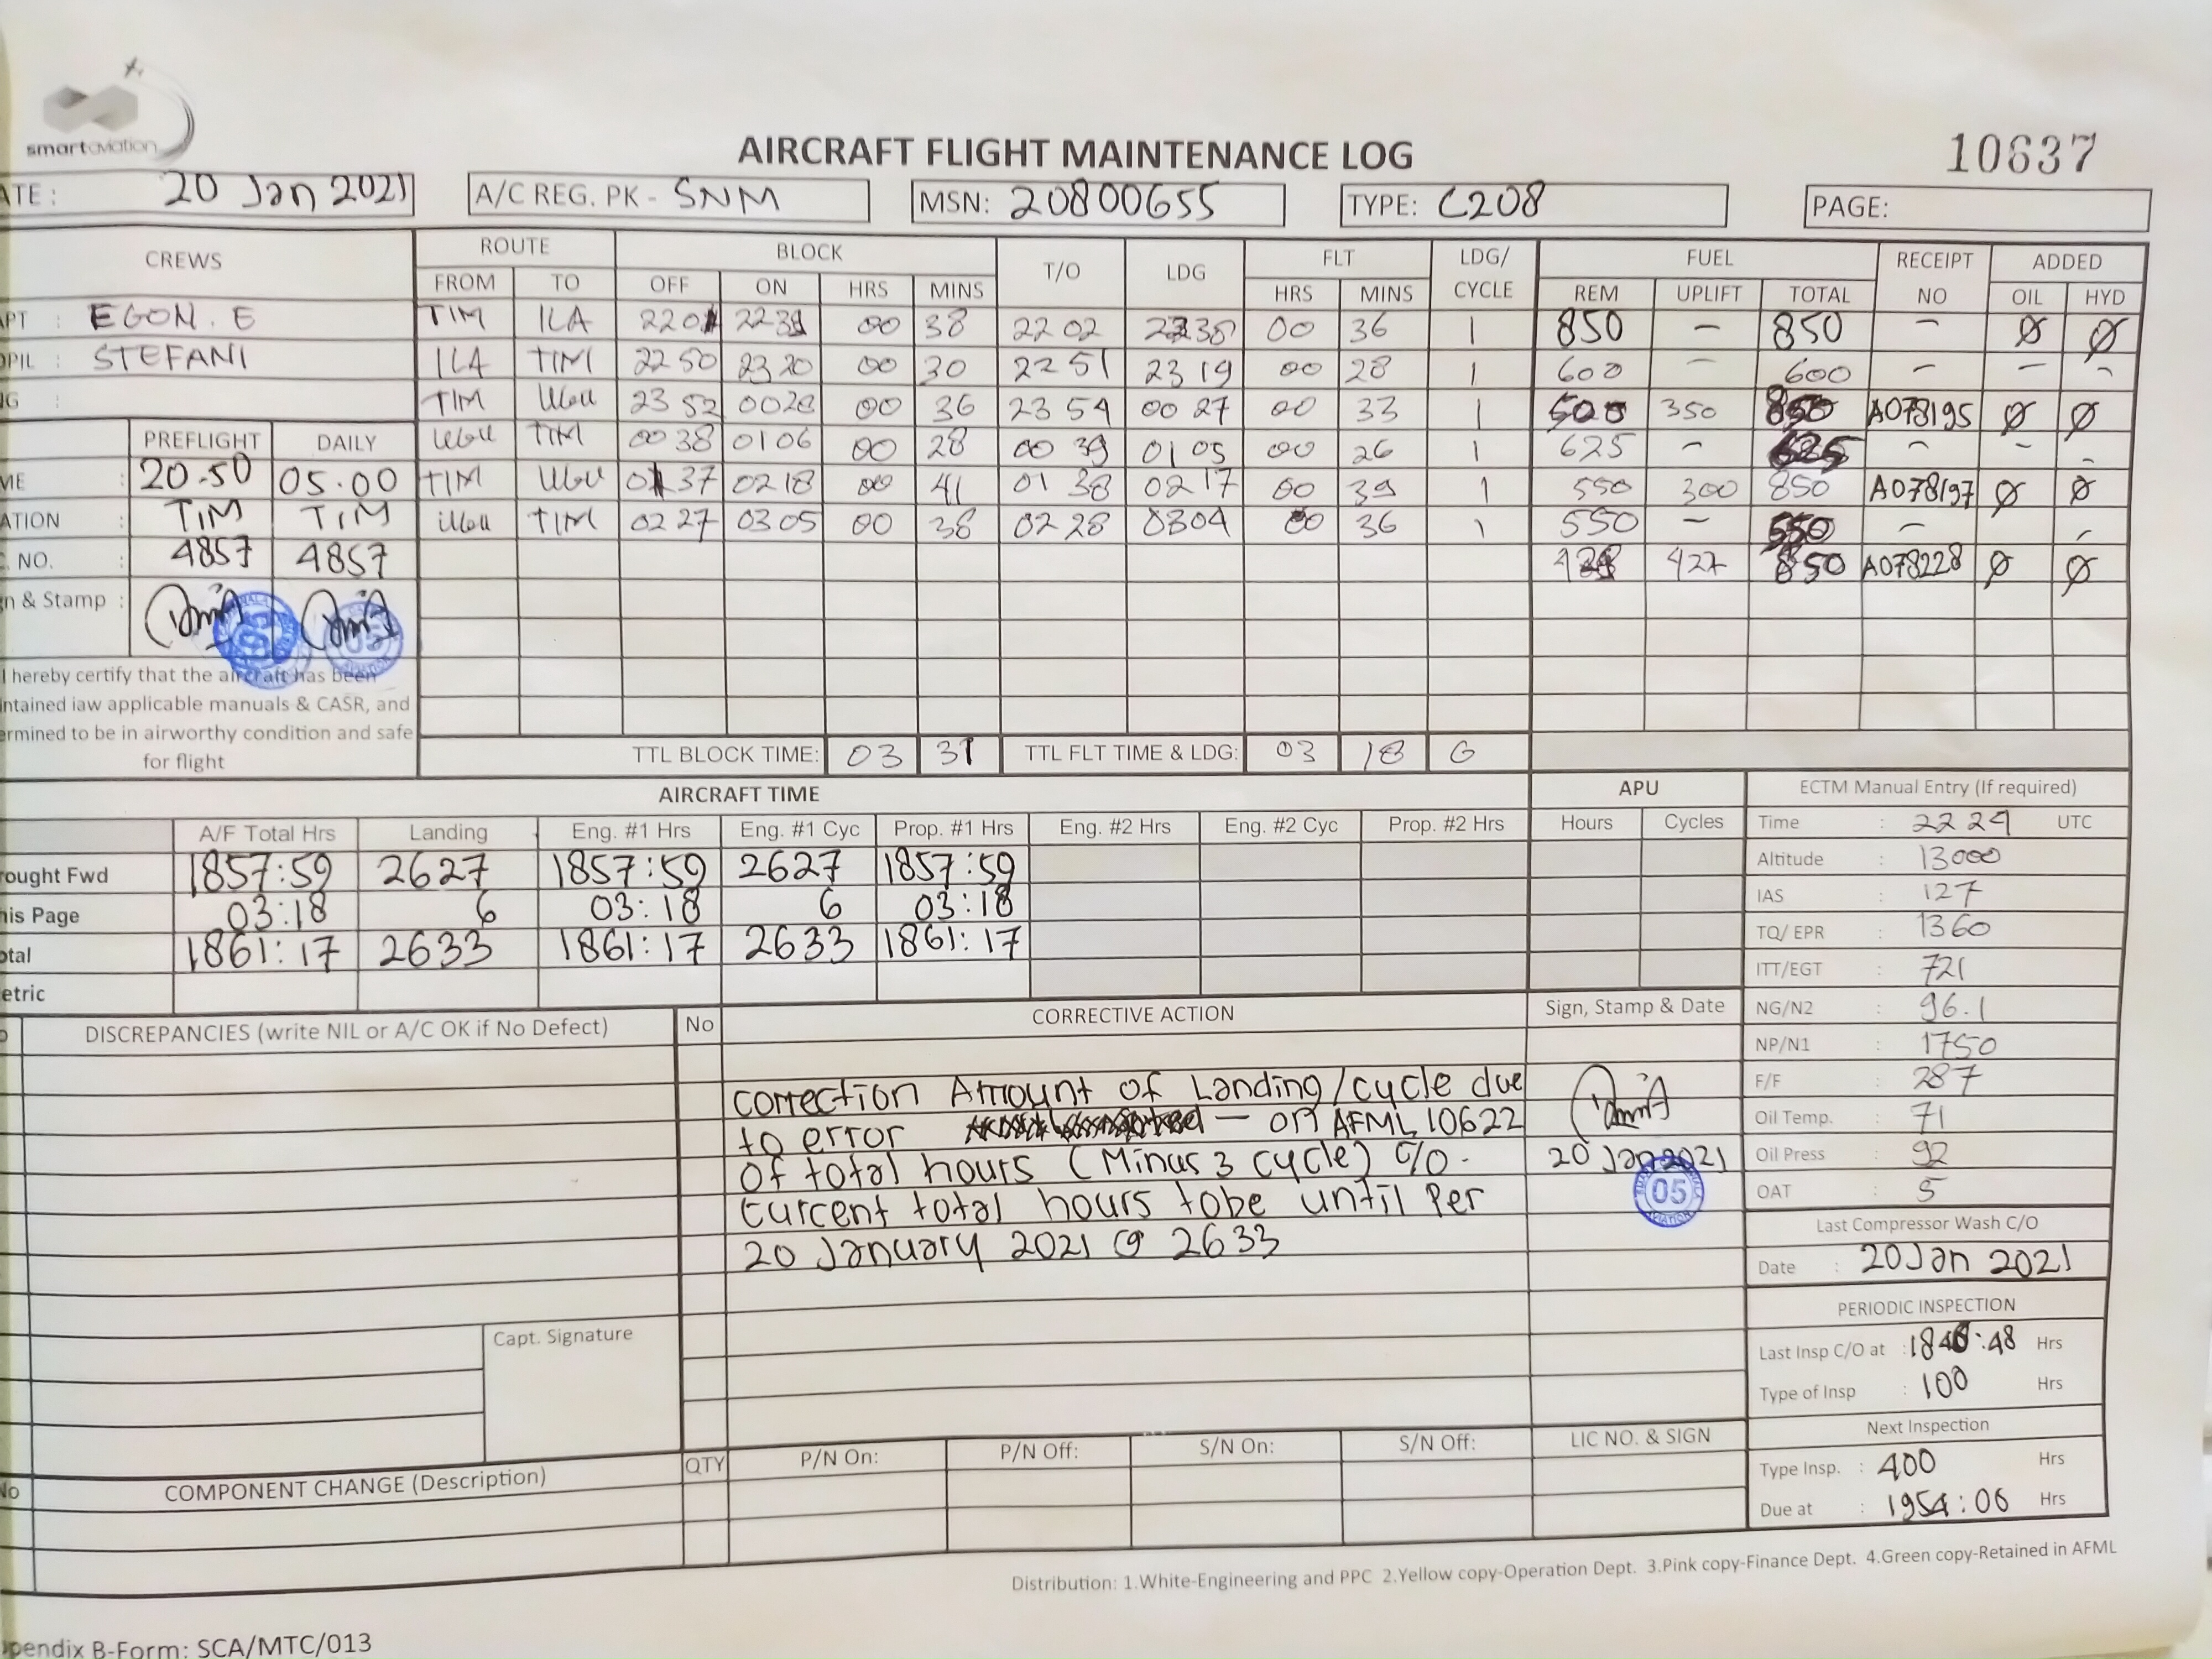 smartaviation
AIRCRAFT FLIGHT MAINTENANCE LOG
10637
ATE : 20 Jan 2021
A/C REG. PK - SNM
MSN: 20800655
TYPE: C208
PAGE:
CREWS ROUTE BLOCK T/O LDG FLT LDG/ CYCLE FUEL RECEIPT NO ADDED
FROM TO OFF ON HRS MINS HRS MINS REM UPLIFT TOTAL OIL HYD
APT : EGON. E TIM ILA 2201 00 38 22 02 2238 00 36 1 850 – 850 – Ø Ø
OPIL : STEFANI ILA TIM 22 50 23 20 00 30 22 51 23 19 00 28 1 600 – 600 – – –
NG : TIM 23 52 00 36 23 54 00 27 00 33 1 500 350 850 A078195 Ø Ø
PREFLIGHT DAILY TIM 00 38 01 06 00 28 00 39 01 05 00 26 1 625 – 625 – – –
ME : 20.50 05.00 TIM 01 37 02 18 00 41 01 38 02 17 00 39 1 550 300 850 A078197 Ø Ø
ATION : TIM TIM TIM 02 27 03 05 00 38 02 28 0304 00 36 1 550 – 550 – –
. NO. : 4857 4857 427 850 A078228 Ø Ø
gn & Stamp :
I hereby certify that the aircraft has been
intained iaw applicable manuals & CASR, and
ermined to be in airworthy condition and safe
for flight
TTL BLOCK TIME: 03 31 TTL FLT TIME & LDG: 03 18 6
AIRCRAFT TIME APU
A/F Total Hrs Landing Eng. #1 Hrs Eng. #1 Cyc Prop. #1 Hrs Eng. #2 Hrs Eng. #2 Cyc Prop. #2 Hrs Hours Cycles
rought Fwd 1857:59 2627 1857:59 2627 1857:59
his Page 03:18 6 03:18 6 03:18
otal 1861:17 2633 1861:17 2633 1861:17
etric
ECTM Manual Entry (If required)
Time : 22 29 UTC
Altitude : 13000
IAS : 127
TQ/ EPR : 1360
ITT/EGT : 721
NG/N2 : 96.1
NP/N1 : 1750
F/F : 287
Oil Temp. : 71
Oil Press : 92
OAT : 5
Last Compressor Wash C/O
Date : 20 Jan 2021
PERIODIC INSPECTION
Last Insp C/O at : Hrs
Type of Insp : 100 Hrs
Next Inspection
Type Insp. : 400 Hrs
Due at : 1954:06 Hrs
DISCREPANCIES (write NIL or A/C OK if No Defect) No CORRECTIVE ACTION Sign, Stamp & Date
correction Amount of Landing/cycle due
to error — on AFML 10622
of total hours (Minus 3 cycle) c/o.
current total hours tobe until Per
20 January 2021 @ 2633
20 Jan 2021
05
Capt. Signature
No COMPONENT CHANGE (Description) QTY P/N On: P/N Off: S/N On: S/N Off: LIC NO. & SIGN
Distribution: 1.White-Engineering and PPC 2.Yellow copy-Operation Dept. 3.Pink copy-Finance Dept. 4.Green copy-Retained in AFML
pendix B-Form: SCA/MTC/013